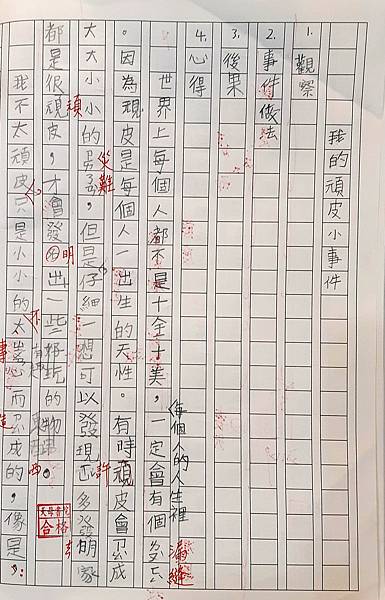 我的頑皮小事件
1. 觀察
2. 事件做法
3. 後果
4. 心得
世界上每個人都不是十全十美，一定會有個
每個人的人生裡
漏縫
。因為頑皮是每個人一出生的天性。有時頑皮會成
大大小小的，但是仔細一想可以發現多發明家
災難
許
都是很頑皮，才會發明出一些好玩的物
頑
明
東西
合格
我不太頑皮只是小小的太心而成的，像是：